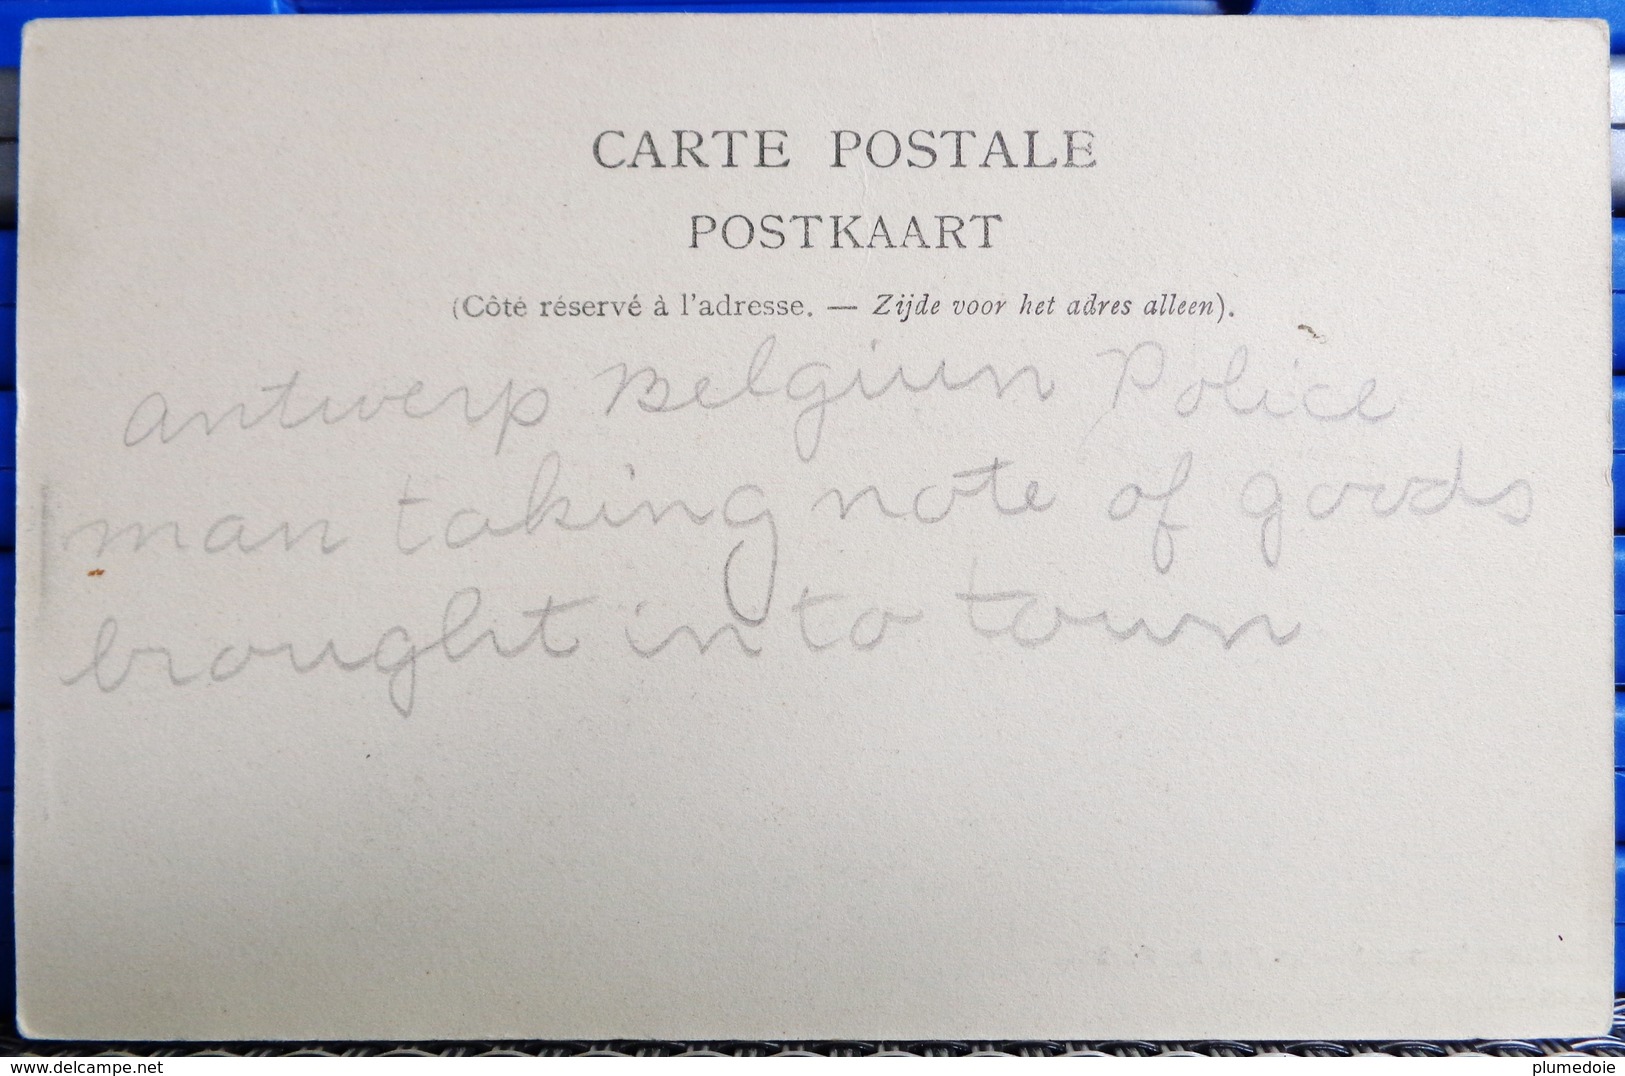 CARTE POSTALE
POSTKAART
(Côté réservé à l'adresse. — Zijde voor het adres alleen).
Antwerp Belgiun Police
man taking note of goods
brought in to town
www.delcampe.net
plumedoie